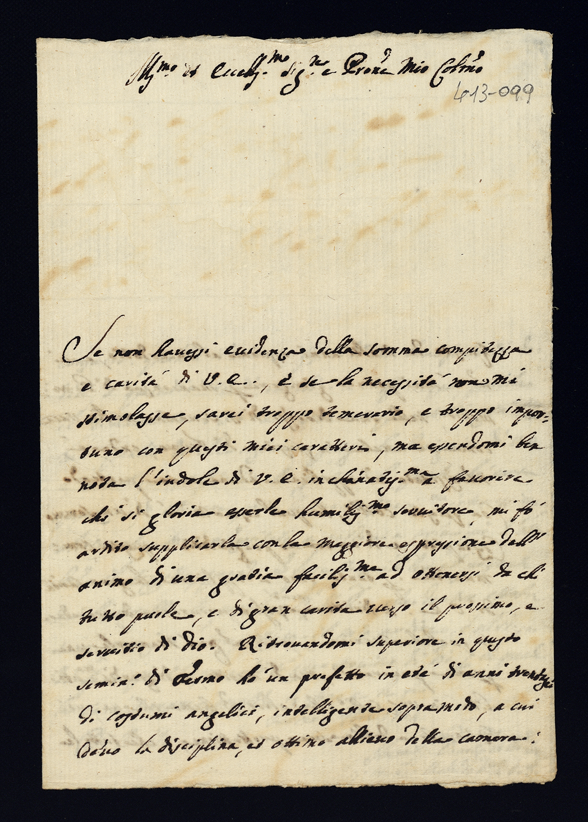 Ill.mo et Eccell.mo Sig.re e Prone Mio Colmo
413-099
Se non havessi evidenza della somma compitezza
e carità di V.E., e se la necessità non mi
stimolasse, sarei troppo temerario, e troppo impor-
tuno con questi miei caratteri, ma essendomi ben
nota l'indole di V.E. inchinatiss.ma a favorire
chi si gloria esserle humiliss.mo servitore, mi fò
ardito supplicarla con la maggiore espressione dell'
animo di una gratia faciliss.ma ad ottenersi da chi
tutto puole, e di gran carita verso il prossimo, e
servitio di Dio. Ritrovandomi superiore in questo
semin. di Fermo hò un prefetto in età di anni
di costumi angelici, intelligente sopramodo, a cui
devo la disciplina, et ottimo allievo della camera: